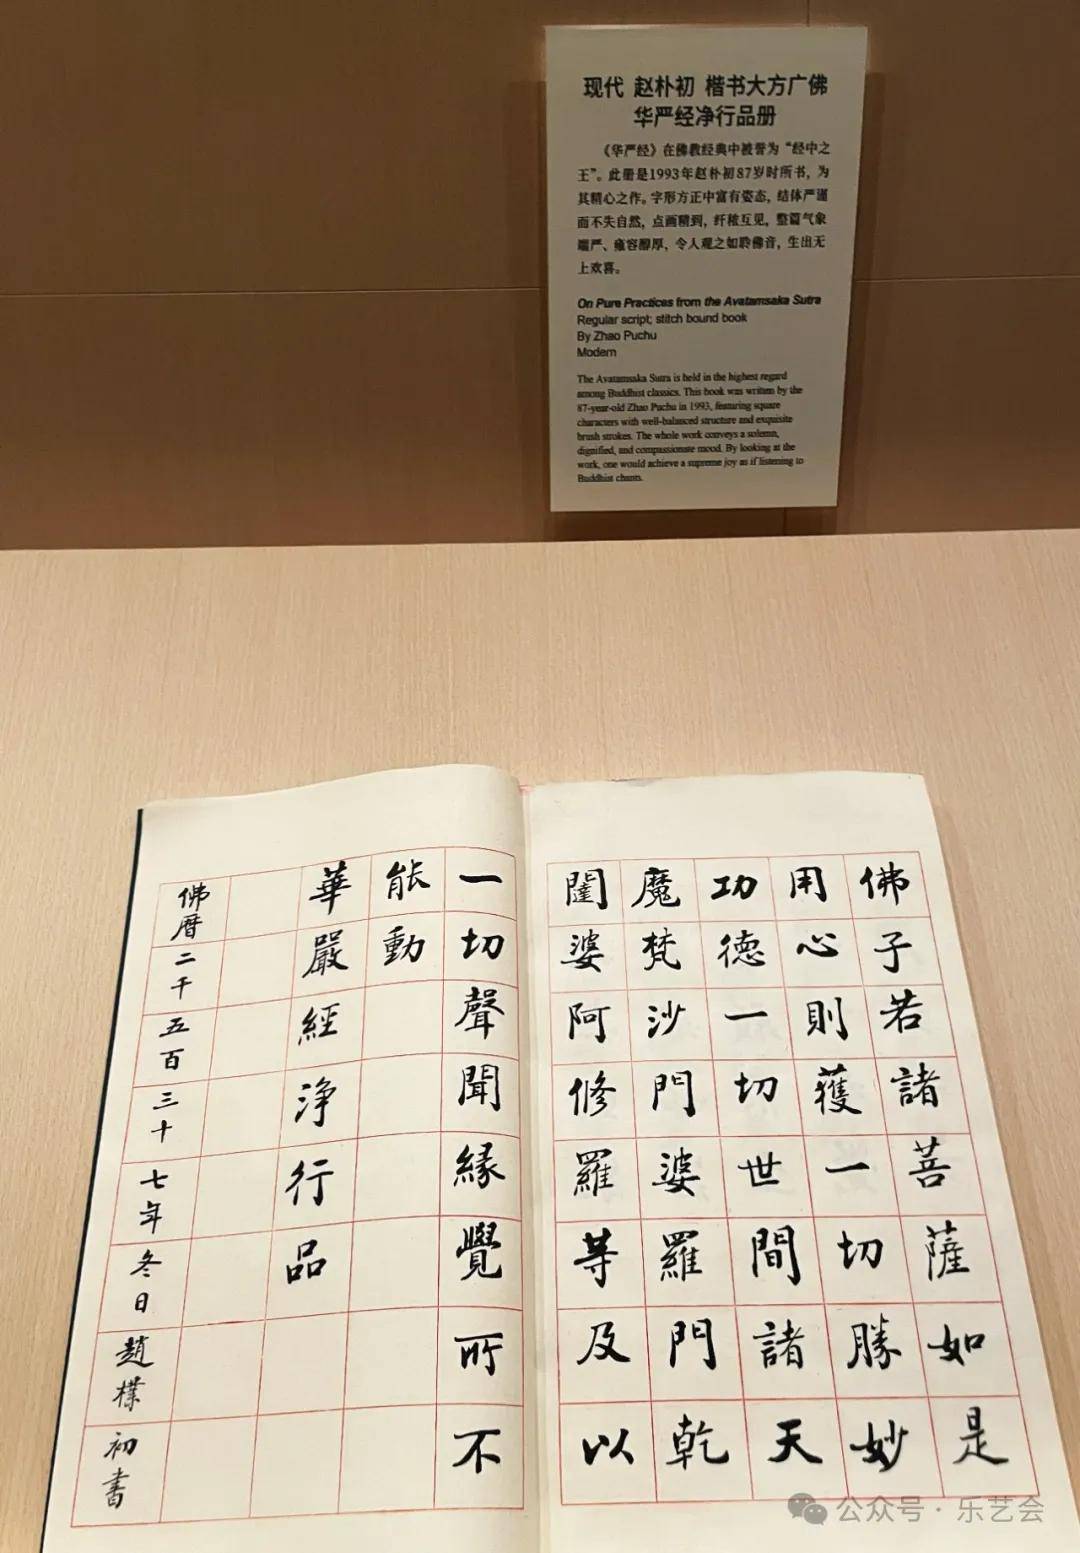 现代 赵朴初 楷书大方广佛
华严经净行品册
《华严经》在佛教经典中被誉为“经中之
王”。此册是1993年赵朴初87岁时所书，为
其精心之作。字形方正中富有姿态，结体严谨
而不失自然，点画精到，纤秾互见，整篇气象
端严、雍容醇厚，令人观之如聆佛音，生出无
上欢喜。
On Pure Practices from the Avatamsaka Sutra
Regular script; stitch bound book
By Zhao Puchu
Modern
The Avatamsaka Sutra is held in the highest regard
among Buddhist classics. This book was written by the
87-year-old Zhao Puchu in 1993, featuring square
characters with well-balanced structure and exquisite
brush strokes. The whole work conveys a solemn,
dignified, and compassionate mood. By looking at the
work, one would achieve a supreme joy as if listening to
Buddhist chants.
佛子若諸菩薩如是
用心則獲一切勝妙
功德一切世間諸天
魔梵沙門婆羅門乾
闥婆阿修羅等及以
一切聲聞緣覺所不
能動
華嚴經淨行品
佛曆二千五百三十七年冬日趙樸初書
公众号·乐艺会